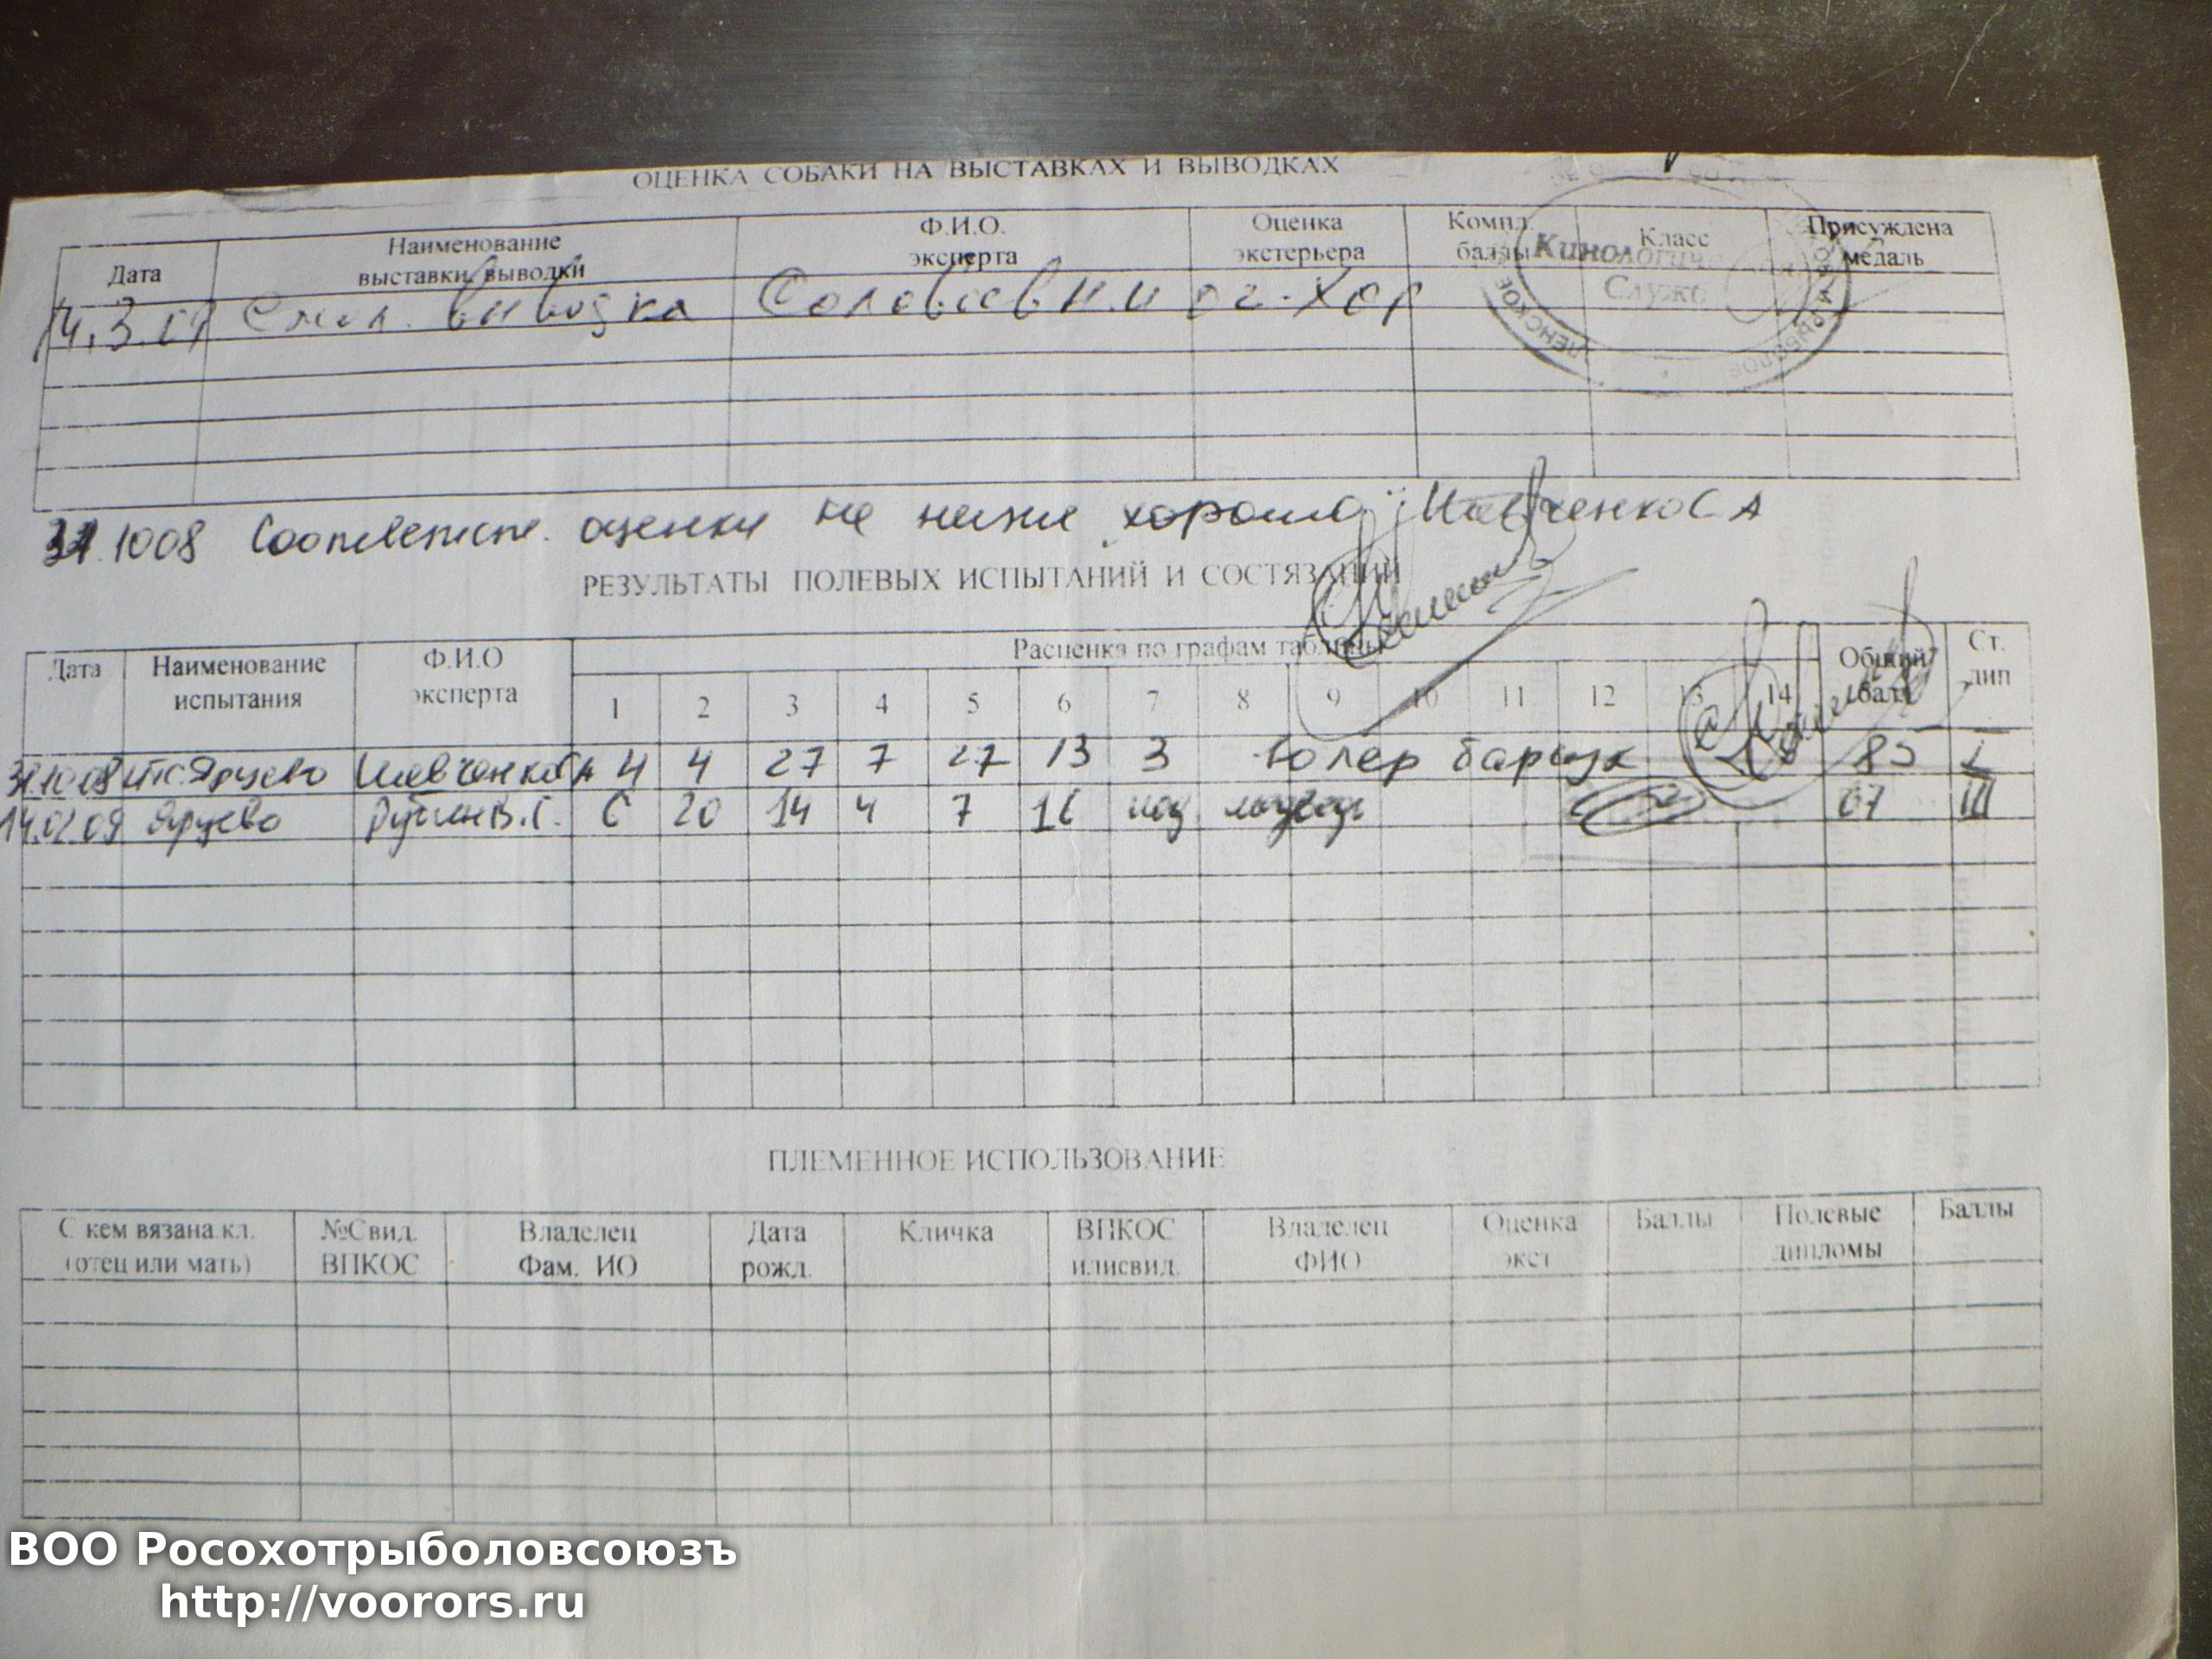 ОЦЕНКА СОБАКИ НА ВЫСТАВКАХ И ВЫВОДКАХ
Дата Наименование выставки, выводки Ф.И.О. эксперта Оценка экстерьера Компл. баллы Класс Присуждена медаль
Кинологическая Служба
14.3.09 Смол. выводка Соловьев Н.И оч-хор
31.1008 Соответств. оценки не ниже хорошо Шевченко С А
РЕЗУЛЬТАТЫ ПОЛЕВЫХ ИСПЫТАНИЙ И СОСТЯЗАНИЙ
Дата Наименование испытания Ф.И.О эксперта Расценка по графам таблицы Общий балл Ст. дип
1 2 3 4 5 6 7 8 9 10 11 12 13 14
31.10.08 Ярцево Шевченко СА 4 4 27 7 27 13 3 барсук 85 I
14.02.09 Ярцево В.С. 6 20 14 4 7 16 67 III
ПЛЕМЕННОЕ ИСПОЛЬЗОВАНИЕ
С кем вязана.кл. (отец или мать) №Свид. ВПКОС Владелец Фам. ИО Дата рожд. Кличка ВПКОС илисвид. Владелец ФИО Оценка экст Баллы Полевые дипломы Баллы
ВОО Росохотрыболовсоюзъ
http://voorors.ru